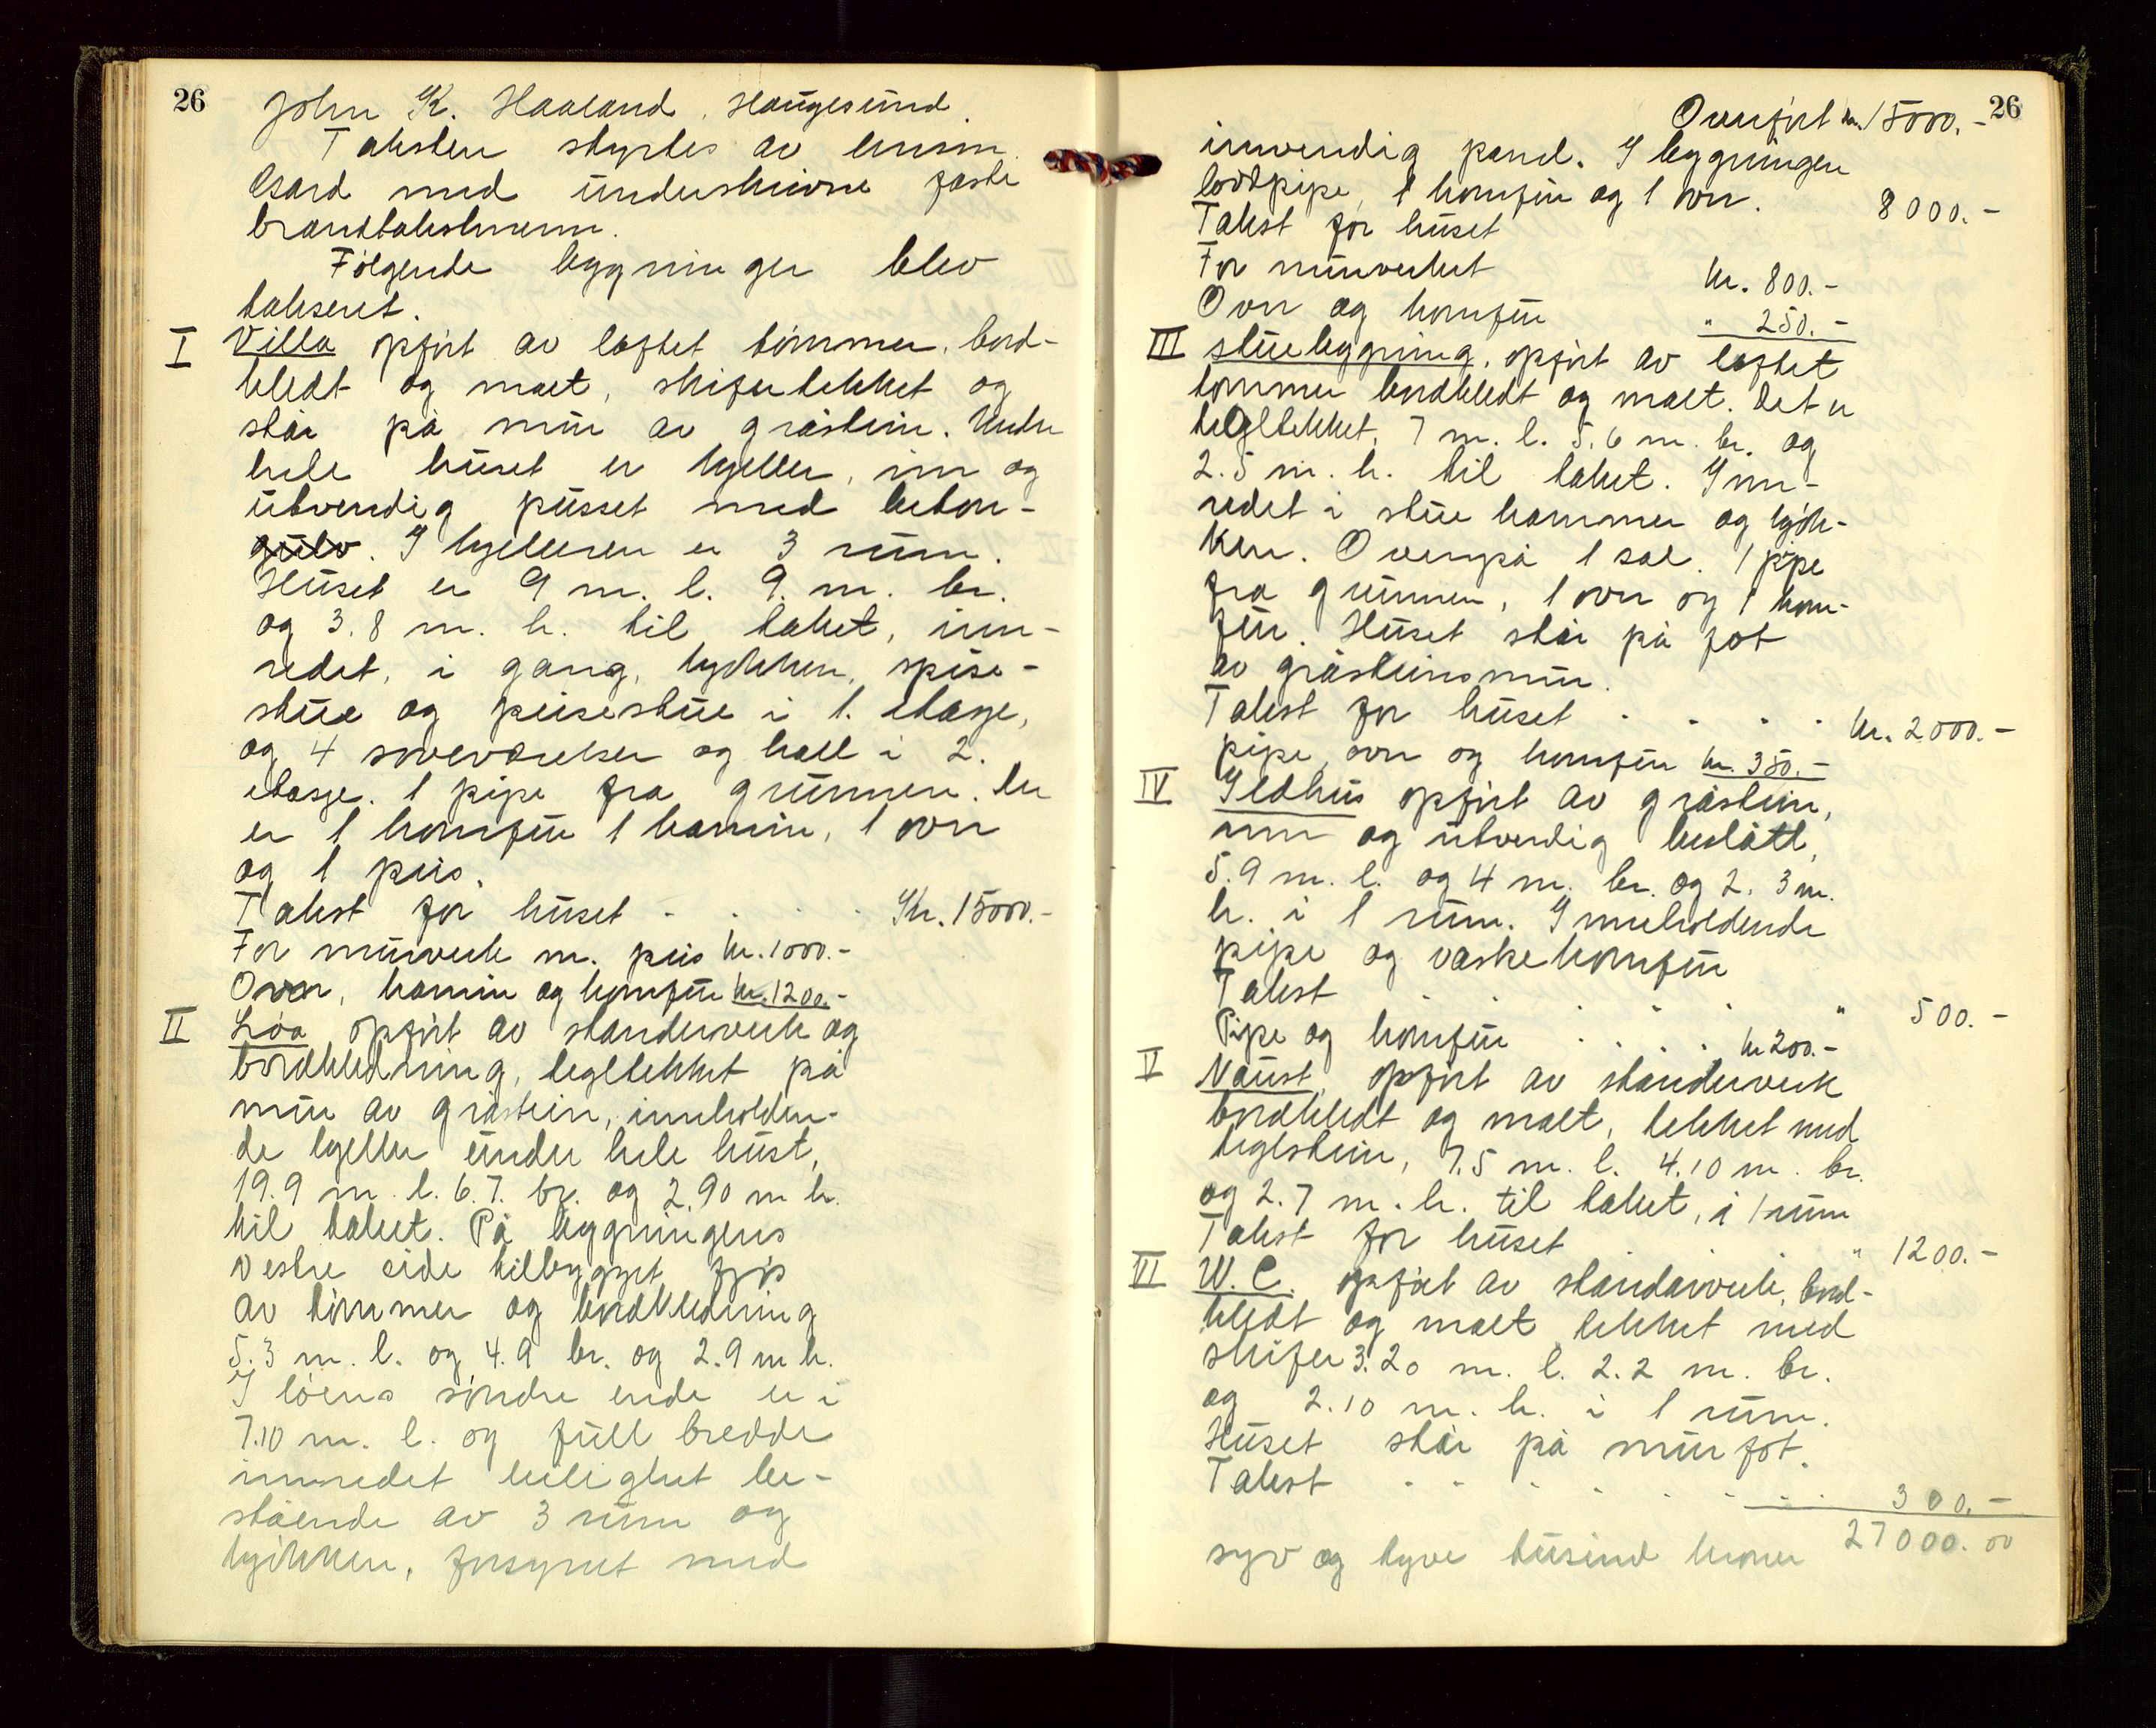 26
John K. Haaland, Haugesund.
Taksten styrtes av lensm.
Gard med underskrivne faste
brandtakstmenn.
Følgende bygninger blev
takseret.
I Villa opført av laftet tømmer, bord-
kledt og malt, skifertekket og
står på mur av gråstein. Under
hele huset er kjeller, inn og
utvendig pusset med beton-
gulv. I kjelleren er 3 rum.
Huset er 9 m. l. 9. m. br.
og 3.8 m. h. til taket, inn-
redet, i gang, kjøkken, spise-
stue og peisestue i 1. etasje,
og 4 soveværelser og hall i 2.
etasje. 1 pipe fra grunnen. Der
er 1 komfur 1 kamin, 1 ovn
og 1 peis.
Takst for huset . . . . Kr. 15000.-
For murverk m. peis kr. 1000.-
Ovn, kamin og komfur kr. 1200.-
II Løa opført av standerverk og
bordkledning, tegltekket på
mur av gråstein, inneholden-
de kjeller under hele hust,
19.9 m. l. 6.7. br. og 2.90 m h.
til taket. På bygningens
vestre side tilbygget fjøs
av tømmer og bordkledning
5.3 m. l. og 4.9 br. og 2.9 m h.
I løens søndre ende er i
7.10 m. l. og full bredde
innredet leilighet be-
stående av 3 rum og
kjøkken, forsynet med
26
Overført kr. 15000.-
innvendig panel. I bygningen
loddpipe, 1 komfur og 1 ovn.
Takst for huset 8000.-
For murverket kr. 800.-
Ovn og komfur " 250.-
III Stuebygning, opført av laftet
tømmer bordkledt og malt. Det er
tegltekket, 7 m. l. 5.6 m. br. og
2.5 m. h. til taket. Inn-
redet i stue kammer og kjøk-
ken. Ovenpå 1 sal. 1 pipe
fra grunnen, 1 ovn og 1 kom-
fur. Huset står på fot
av gråsteinsmur.
Takst for huset . . . . kr. 2000.-
pipe, ovn og komfur kr. 350.-
IV Ildhus opført av gråstein,
inn og utvendig beslått,
5.9 m. l. og 4 m. br. og 2.3 m.
h. i 1 rum. Inneholdende
pipe og vaskekomfur
Takst . . . . . " 500.-
Pipe og komfur . . . . kr 200.-
V Naust, opført av standerverk
bordkledt og malt, tekket med
teglstein, 7.5 m. l. 4.10 m. br.
og 2.7 m. h. til taket, i 1 rum
Takst for huset . . . " 1200.-
VI W.C. opført av standarverk, bord-
kledt og malt tekket med
skifer 3.20 m. l. 2.2 m. br.
og 2.10 m. h. i 1 rum.
Huset står på murfot.
Takst . . . . . . . 300.-
syv og tyve tusind kroner 27000.00